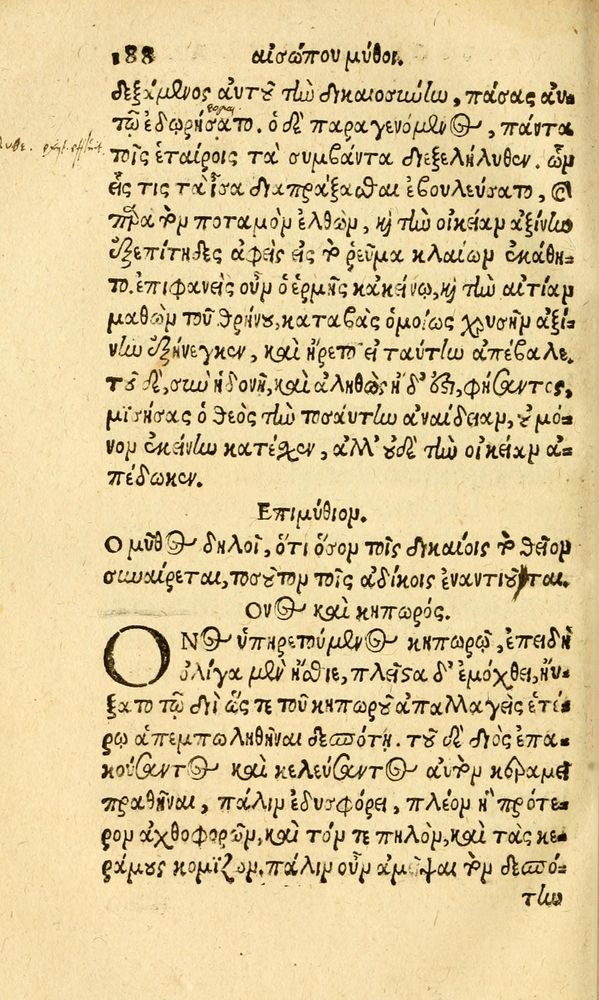 188 αἰσώπου μύθοι.
δεξάμενος αὐτοῦ τὴν δικαιοσύνην, πάσας αὐ-
τῷ ἐδωρήσατο. ὁ δὲ παραγενόμενος, πάντα
τοῖς ἑταίροις τὰ συμβάντα διεξελήλυθεν. ὧν
εἷς τις τὰ ἶσα διαπράξασθαι ἐβουλεύσατο, καὶ
παρὰ τὸν ποταμὸν ἐλθὼν, καὶ τὴν οἰκείαν ἀξίνην
ἐξεπίτηδες ἀφεὶς εἰς τὸ ῥεῦμα κλαίων ἐκάθη-
το. ἐπιφανεὶς οὖν ὁ ἑρμῆς κἀκείνῳ, καὶ τὴν αἰτίαν
μαθὼν τοῦ θρήνου, καταβὰς ὁμοίως χρυσῆν ἀξί-
νην ἐξήνεγκεν, καὶ ἤρετο εἰ ταύτην ἀπέβαλε.
τοῦ δὲ, σὺν ἡδονῇ, καὶ ἀληθῶς ἥδ' ἐστὶ, φήσαντος,
μισήσας ὁ θεὸς τὴν τοσαύτην ἀναίδειαν, οὐ μό-
νον ἐκείνην κατέσχεν, ἀλλ' οὐδὲ τὴν οἰκείαν ἀ-
πέδωκεν.
Επιμύθιον.
Ο μῦθος δηλοῖ, ὅτι ὅσον τοῖς δικαίοις τὸ θεῖον
συναίρεται, τοσοῦτον τοῖς ἀδίκοις ἐναντιοῦται.
Ονος καὶ κηπωρός.
ΟΝος ὑπηρετούμενος κηπωρῷ, ἐπειδὴ
ὀλίγα μὲν ἤσθιε, πλεῖστα δ' ἐμόχθει, ηὔ-
ξατο τῷ διῒ ὥστε τοῦ κηπωροῦ ἀπαλλαγεὶς ἑτέ-
ρῳ ἀπεμποληθῆναι δεσπότῃ. τοῦ δὲ διὸς ἐπα-
κούσαντος καὶ κελεύσαντος αὐτὸν κεραμεῖ
πραθῆναι, πάλιν ἐδυσφόρει, πλέον ἢ πρότε-
ρον ἀχθοφορῶν, καὶ τόν τε πηλὸν, καὶ τὰς κε-
ράμους κομίζων. πάλιν οὖν ἀμεῖψαι τὸν δεσπό-
την